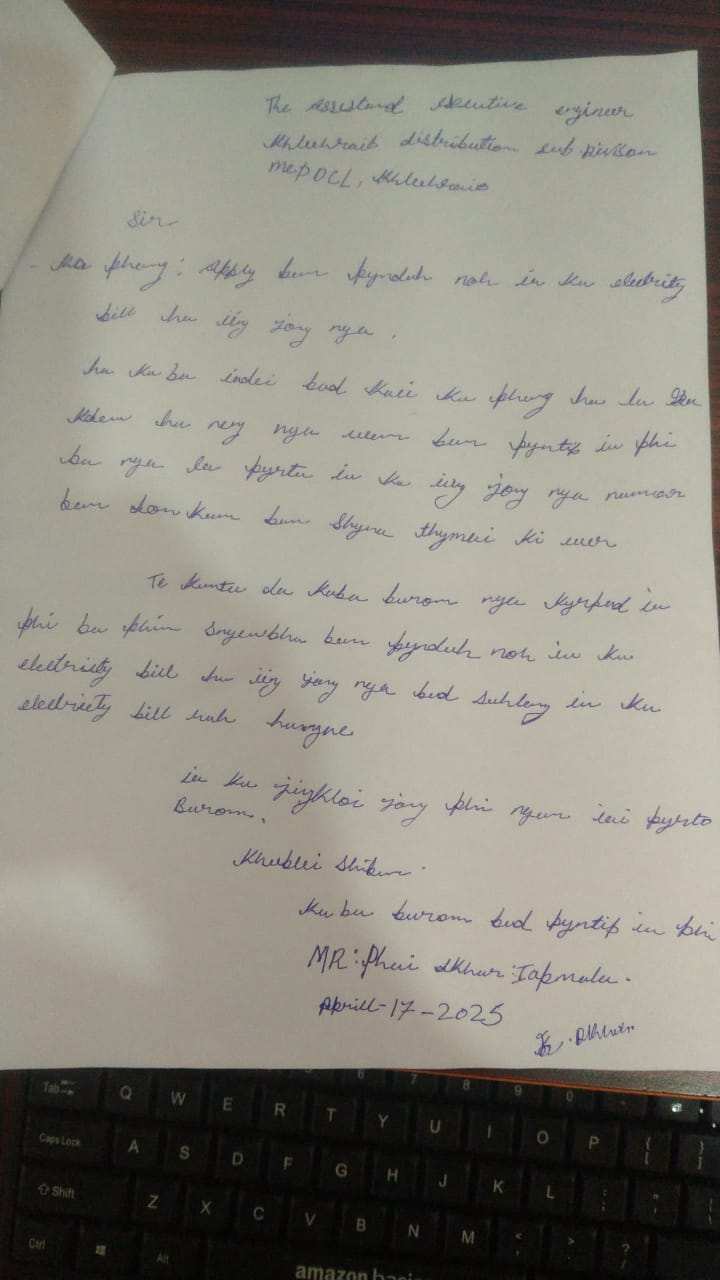 The assistand executive engineer
Khliehriat distribution sub Divison
MePDCL, Khliehriat
Sir
Ka phang: Apply ban pynduh noh ia ka eletrity
bill ha iing jong nga.
ha kaba iadei bad kaei ka phang ha la
kdew ha neng nga wan ban pyntip ia phi
ba nga la pyrta ia ka iing jong nga namar
ban don kam ban shyna thymai ki wer
Te kumta da kaba burom nga kyrpad ia
phi ba phin sngewbha ban pynduh noh ia ka
electricity bill ha iing jong nga bad suhlang ia ka
eledricety bill nah hangne
ia ka jingkloi jong phi ngan iai pyrto
Burom.
Khublei Shibun.
Kaba burom bad pyntip ia phi
MR: Phai dkhar: Iapmala.
Aprill-17-2025
Dkhar
Tab
Q W E R T Y U I O P { [ } ]
Caps Lock A S D F G H J K L : ; " '
Shift Z X C V B N M < , > . ? /
Ctrl Alt
amazon basic